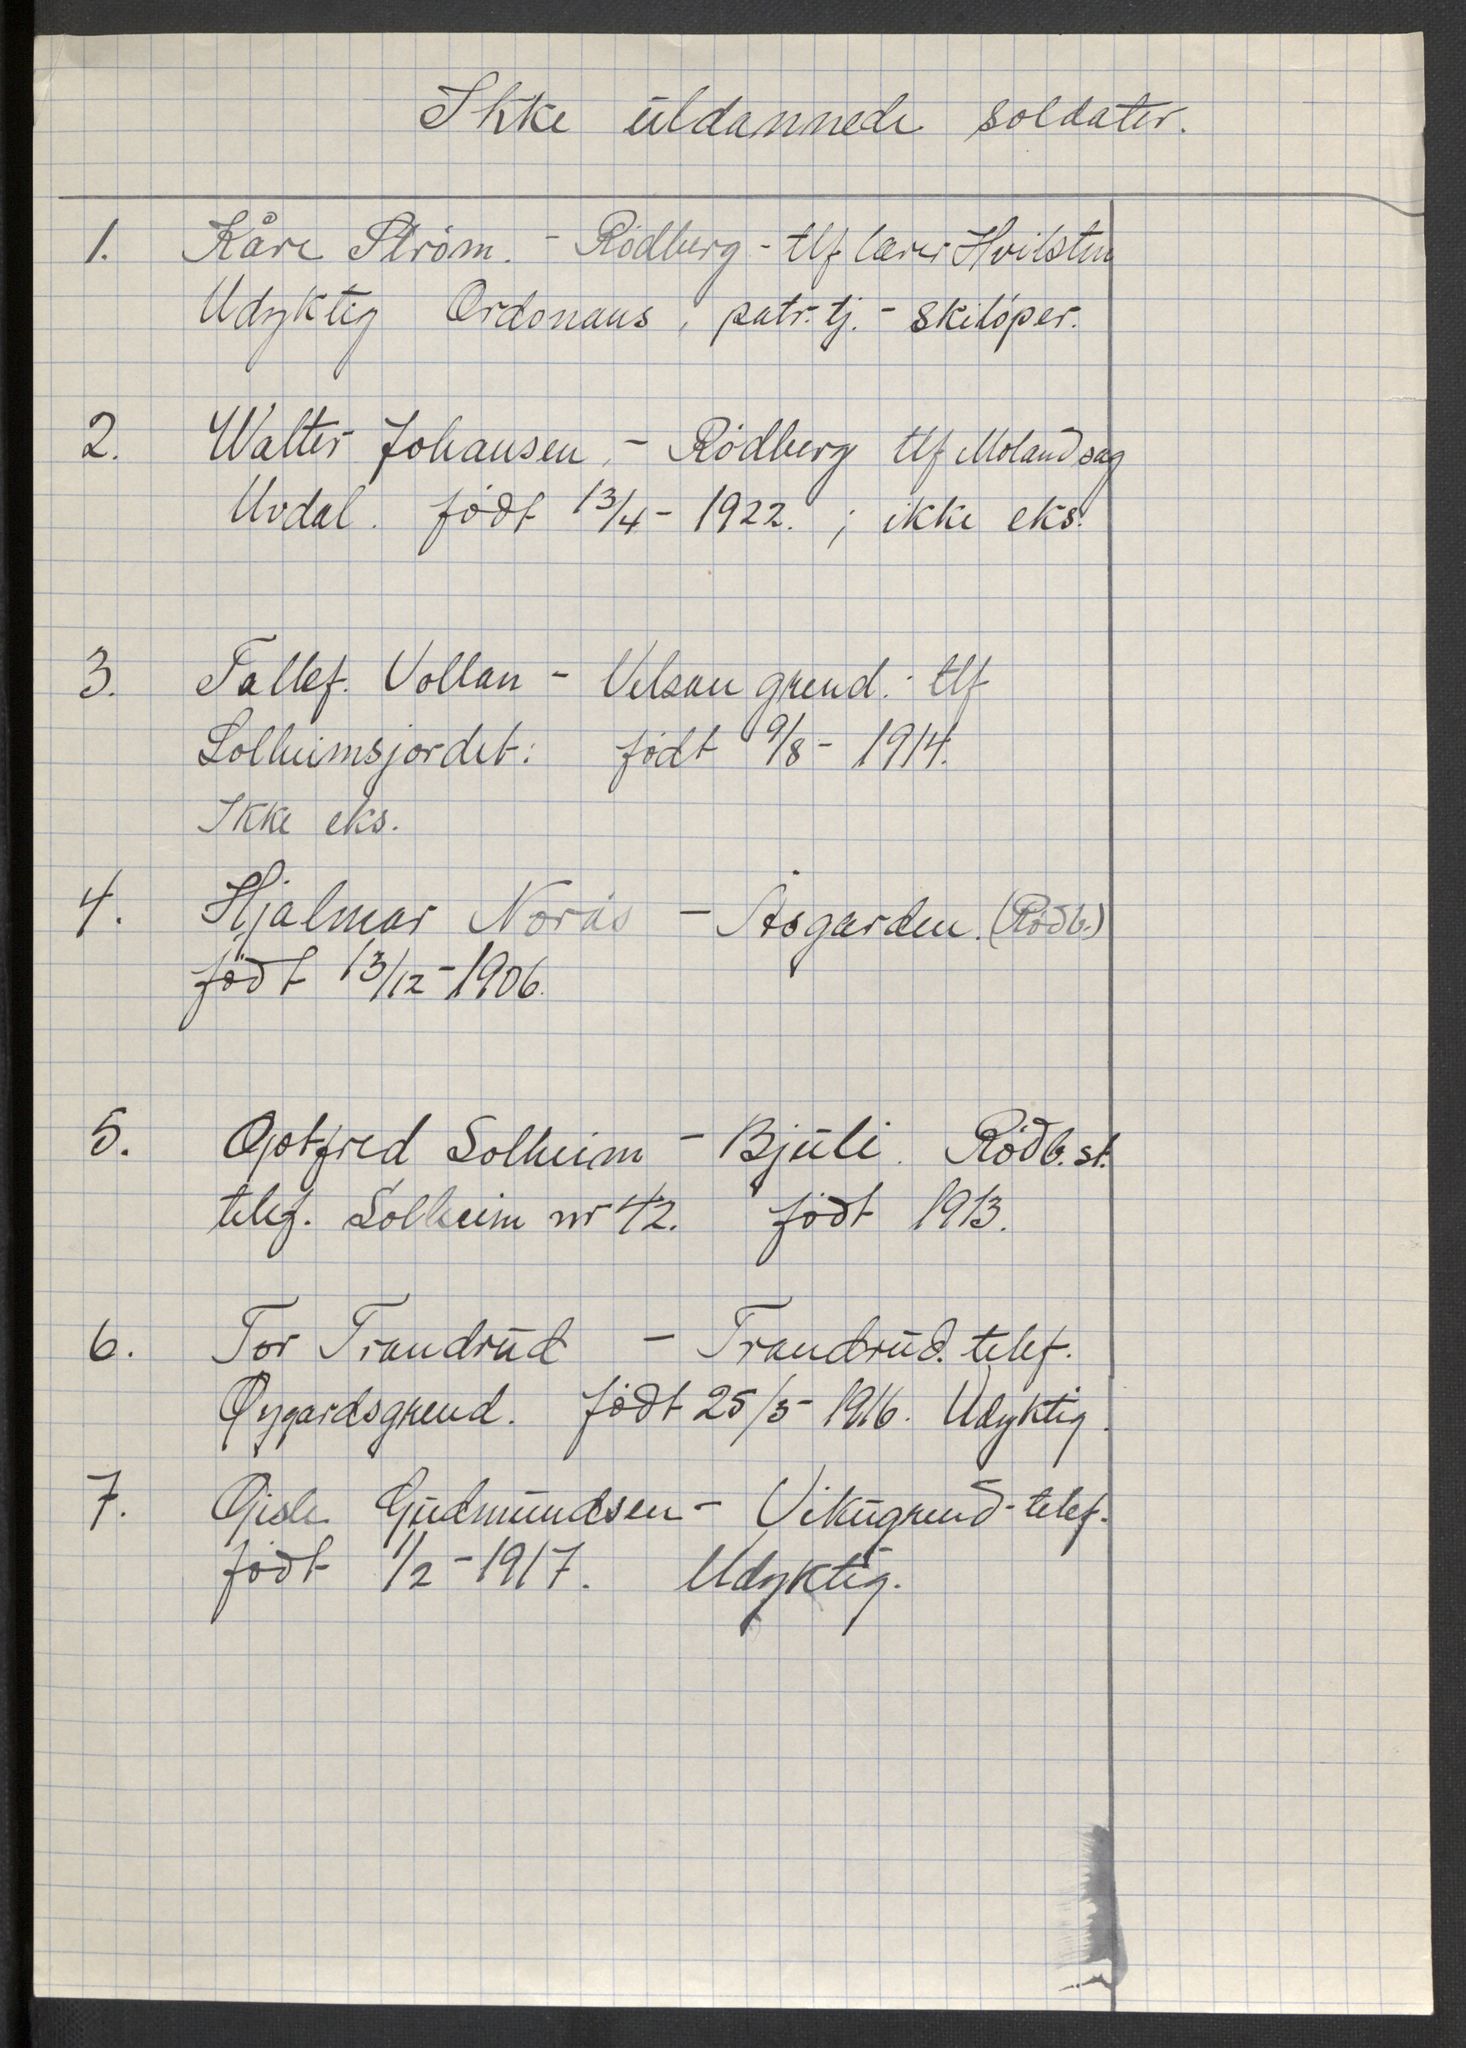 Ikke utdannede soldater.
1. Kåre Strøm. - Rødberg - tlf lærer Hvilsten
Udyktig Ordonans, patr. tj. - skiløper.
2. Walter Johansen, - Rødberg tlf Moland sag
Uvdal. født 13/4 - 1922. ; ikke eks.
3. Tallef. Vollan - grend. - tlf
Solheimsjordet: født 9/8 - 1914.
Ikke eks.
4. Hjalmar Norås - Åsgarden. (Rødb.)
født 13/12 - 1906.
5. Gotfred Solheim - Bjúli. Rødb. st.
telef. Solheim nr 42. født 1913.
6. Tor Trandrud - Trandrud. telef.
Øygardsgrend. født 25/5 - 1916. Udyktig.
7. Gisle Gudmundsen - Vikugrend - telef.
født 1/2 - 1917. Udyktig.